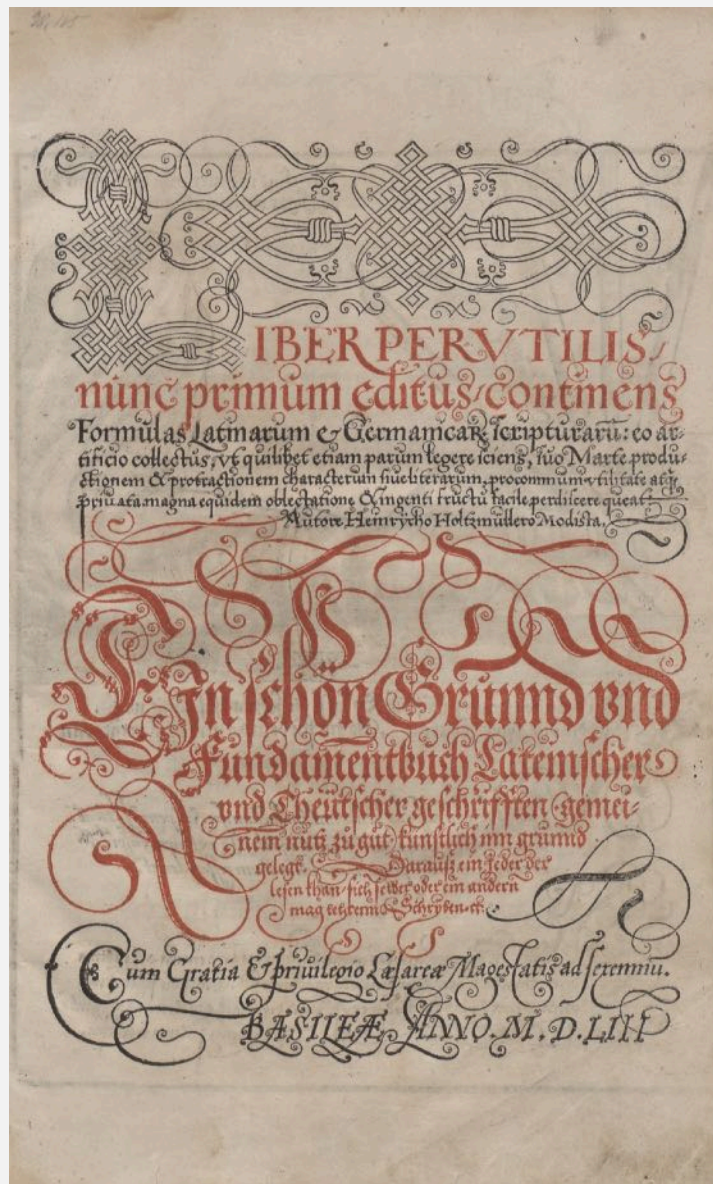 LIBER PERVTILIS,
nunc primum editus, continens
Formulas Latinarum & Germanicaꝝ scripturarū: eo ar-
tificio collectus, vt quilibet etiam parum legere sciens, suo Marte produ-
ctionem & protractionem characterum siue literarum, pro communi vtilitate atqꝫ
priuata magna equidem oblectatione & ingenti fructu facile perdiscere queat.
Autore Heinrycho Holtzmüllero Modista.
EIn schön Grunnd vnd
Fundamentbuch Lateinscher
vnd Theütscher geschrifften gemei-
nem nutz zu gut künstlich inn grunnd
gelegt. Darausz ein jeder der
lesen khan sich selber oder ein andern
mag lehrenn Schryben ꝛc.
Cum Gratia & priuilegio Cæsareæ Magestatis ad sexenniū.
BASILEÆ ANNO. M. D. LIII